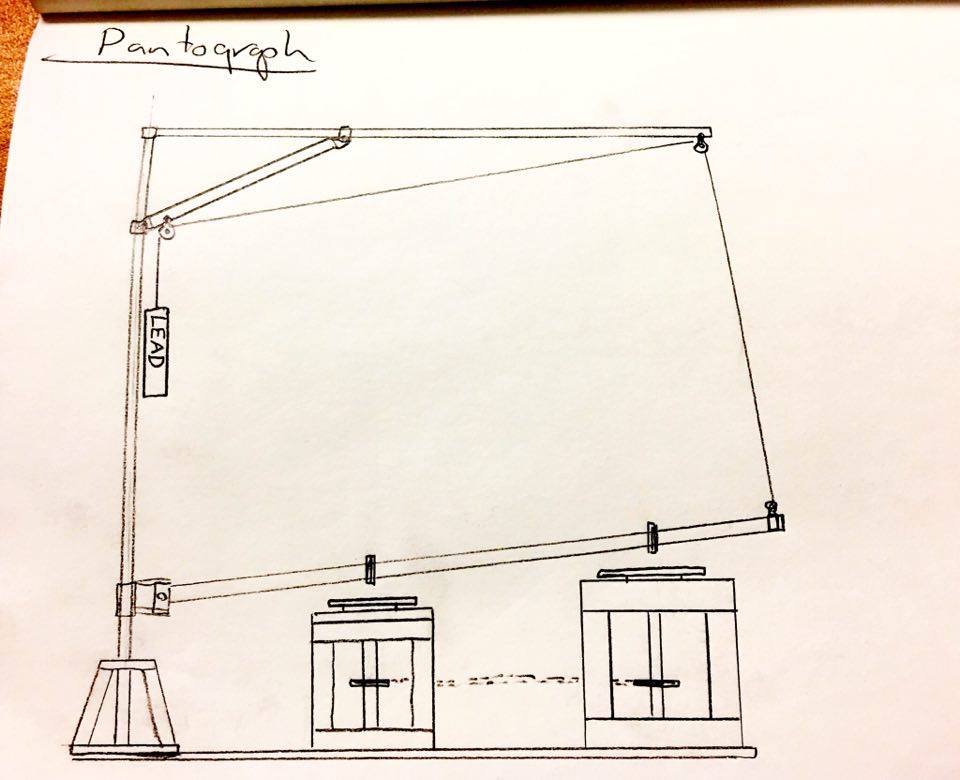 Pantograph
LEAD